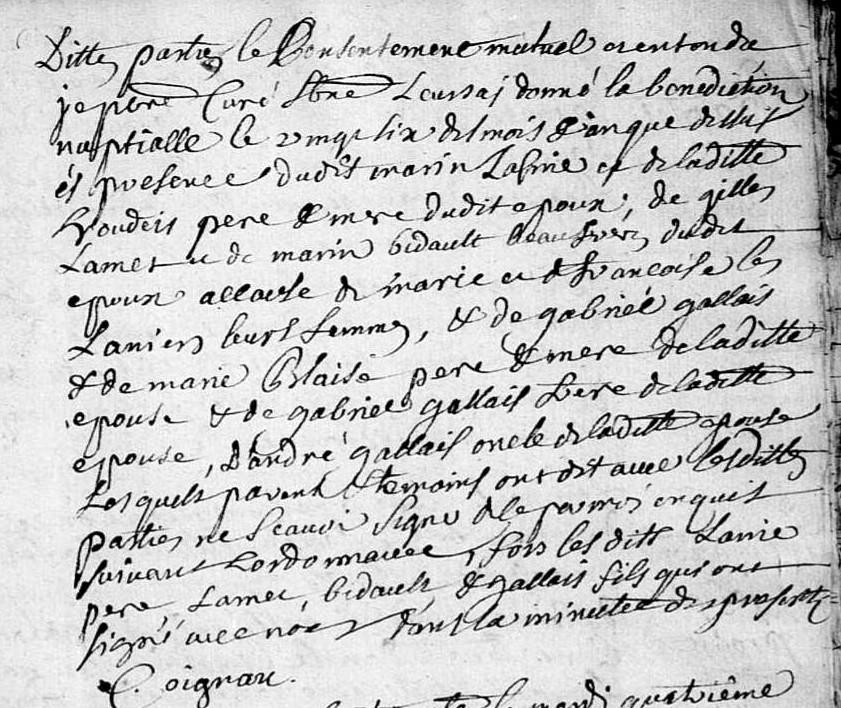 Dittes parties le Consentement mutuel et entendre
je pbre Curé sbne leur ai donné la benediction
nuptialle le vingt six des mois & an que dessus
és presence dudit marin Lanie et de laditte
pere & mere dudit epoux, de gilles
Lamer et de marin bidault beau freres dudit
epoux a cause de marie et de francoise les
Laniers leurs femmes, & de gabriel gallais
& de marie Blaise pere & mere de laditte
epouse & de gabriel gallais frere de laditte
epouse, d'andré gallais oncle de laditte epouse
Lesquels parents & temoins ont dit avec lesdittes
parties ne scavoir signer de ce par moi enquis
suivant Lordonnance, fors les dits Lanie
pere Lamer, bidault & gallais fils qui ont
signés avec nous dans la minutte des presentes
C. Coignar.
le mardi quatrième